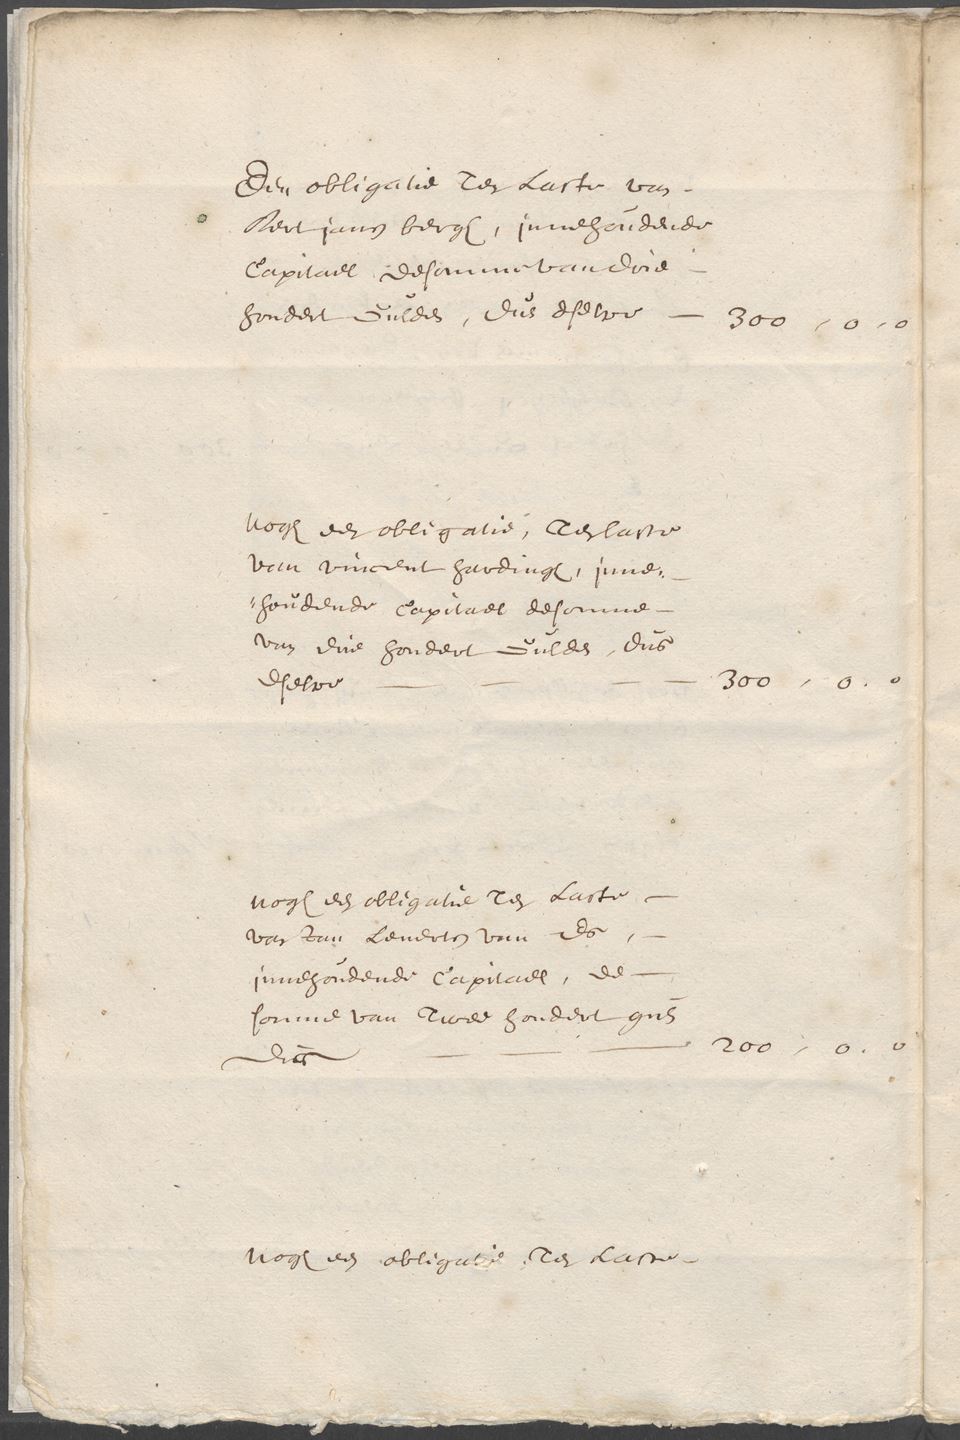 Een obligatie ten Laste van -
Bert jans bergh, innehoudende
Capitael de somme van drie -
hondert Gulden, dus deselve — 300 , 0 , 0
nogh een obligatie, ten laste
van vincent hardingh, inne„-
„houdende Capitael de somme -
van drie hondert Gulden, dus
deselve — — — — 300 , 0 . 0
nogh een obligatie ten Laste —
van Jan Lenerts van Es , —
innehoudende Capitael, de —
somme van Twee hondert guls
dus — — — 200 , 0 . 0
nogh een obligatie ten Laste -